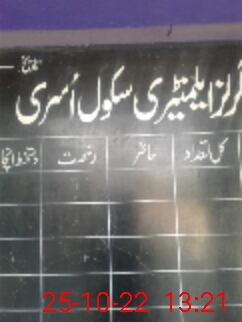 تاریخ
گرلز ایلیمنٹری سکول اُسری
کل تعداد حاضر رخصت دستخط انچا
25-10-22 13:21